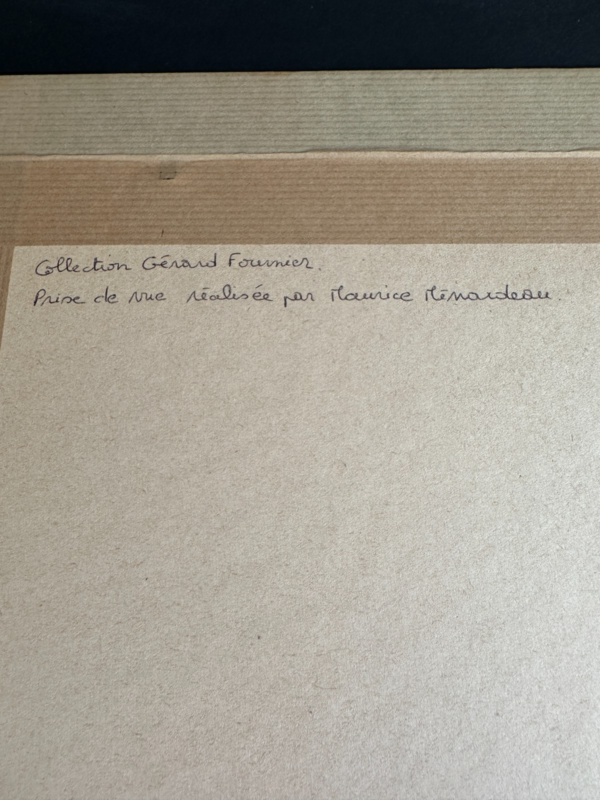 Collection Gérard Fournier.
Prise de vue réalisée par Maurice Ménardeau.